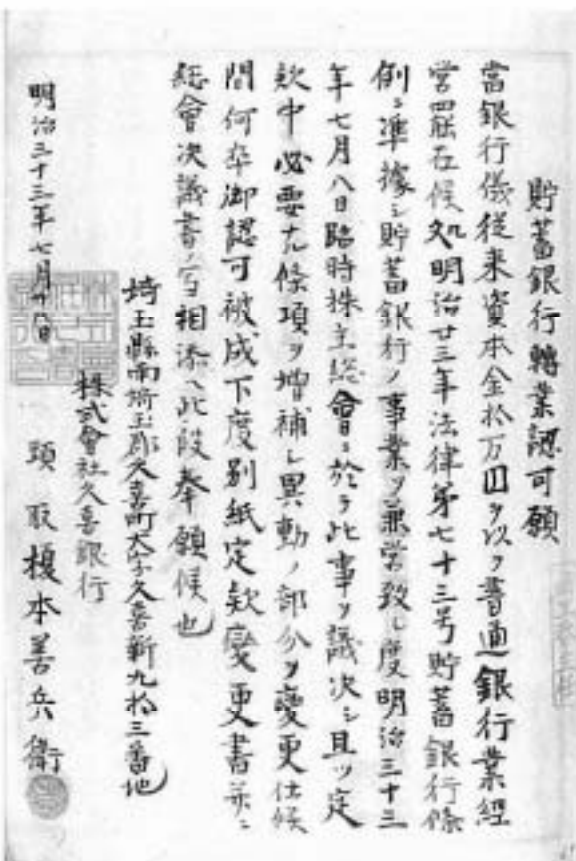 貯蓄銀行轉業認可願
當銀行儀從来資本金拾万円ヲ以テ普通銀行業経
営罷在候処明治廿三年法律第七十三号貯蓄銀行條
例ニ準據シ貯蓄銀行ノ事業ヲ兼営致シ度明治三十三
年七月八日臨時株主総會ニ於テ此事ヲ議决シ且ツ定
款中必要ナル條項ヲ増補シ異動ノ部分ヲ変更仕候
間何卒御認可被成下度別紙定款変更書并ニ
総會决議書ノ写相添ヘ此段奉願候也
埼玉縣南埼玉郡久喜町大字久喜新九拾三番地
株式會社久喜銀行
頭取榎本善兵衛
明治三十三年七月 日